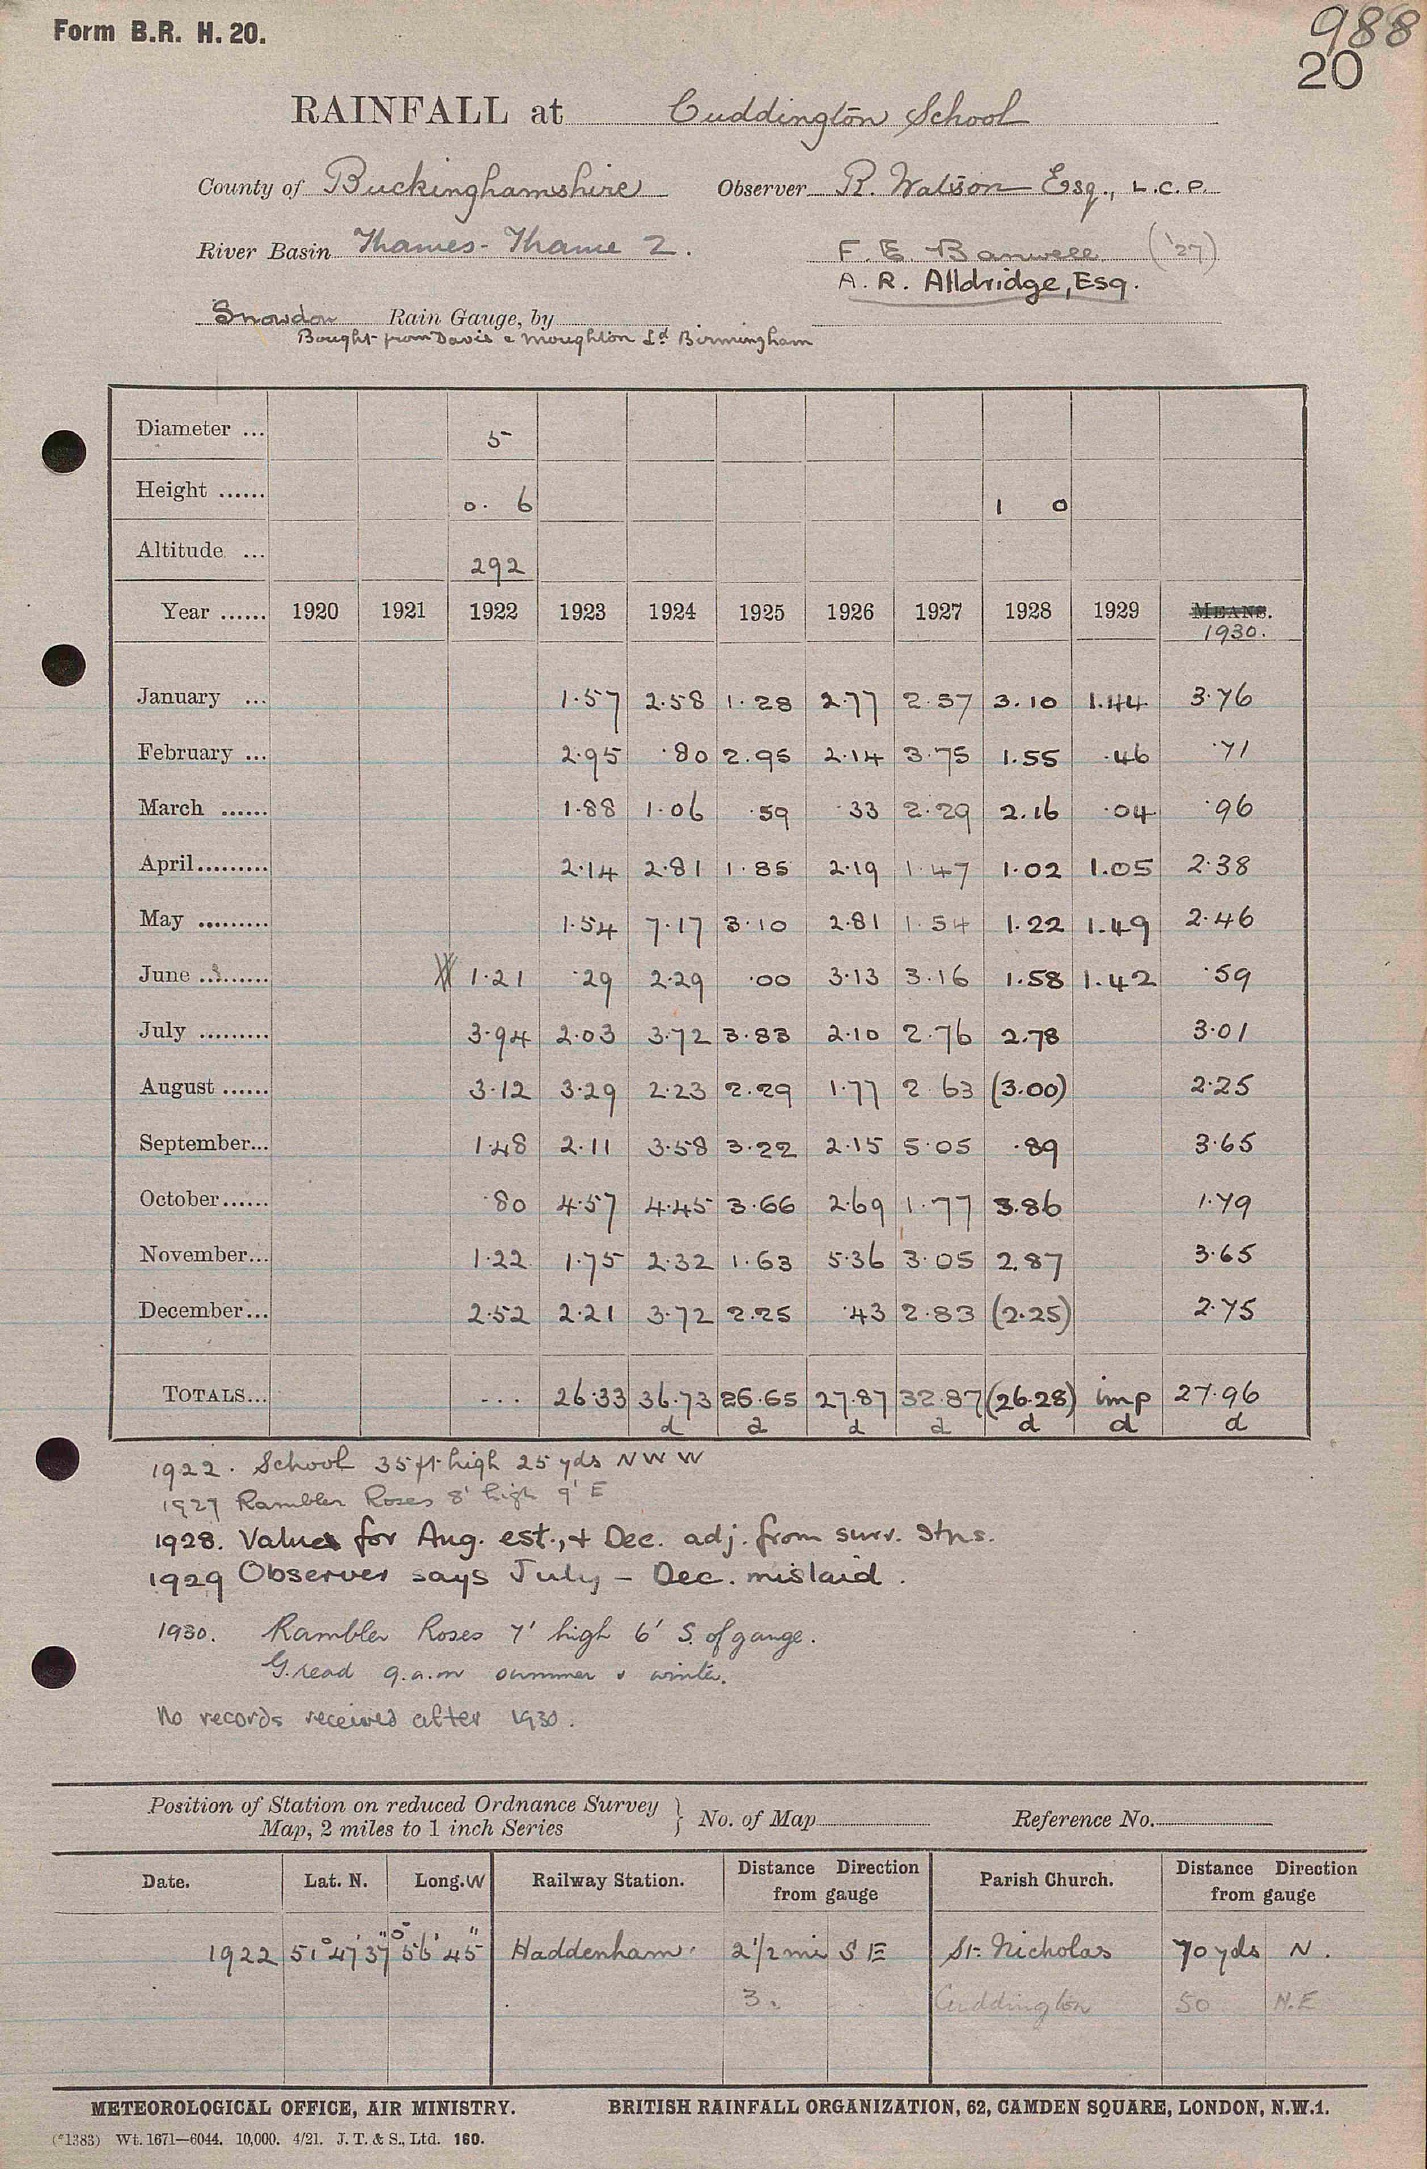 Form B.R. H. 20.
988
20
RAINFALL at Cuddington School
County of Buckinghamshire Observer R. Watson Esq., L.C.P.
River Basin Thames - Thame 2. F. E. Banwell ('27)
A. R. Alldridge, Esq.
Snowdon Rain Gauge, by
Bought from Davis & Moughton Ld Birmingham
Diameter ... 5
Height ...... 0. 6 1 0
Altitude ... 292
Year ...... 1920 1921 1922 1923 1924 1925 1926 1927 1928 1929 MEANS.
1930.
January ... 1.57 2.58 1.28 2.77 2.37 3.10 1.44 3.76
February ... 2.95 .80 2.95 2.14 3.75 1.55 .46 .71
March ...... 1.88 1.06 .59 .33 2.29 2.16 .04 .96
April......... 2.14 2.81 1.85 2.19 1.47 1.02 1.05 2.38
May ......... 1.54 7.17 3.10 2.81 1.54 1.22 1.49 2.46
June ......... 1.21 .29 2.29 .00 3.13 3.16 1.58 1.42 .59
July ......... 3.94 2.03 3.72 3.83 2.10 2.76 2.78 3.01
August ...... 3.12 3.29 2.23 2.29 1.77 2.63 (3.00) 2.25
September... 1.48 2.11 3.58 3.22 2.15 5.05 .89 3.65
October...... .80 4.57 4.45 3.66 2.69 1.77 3.86 1.79
November... 1.22 1.75 2.32 1.63 5.36 3.05 2.87 3.65
December... 2.52 2.21 3.72 2.25 .43 2.83 (2.25) 2.75
TOTALS... ... 26.33 36.73 26.65 27.87 32.87 (26.28) imp 27.96
d d d d d d d
1922. School 35 ft high 25 yds N W W
1927 Rambler Roses 8' high 9' E
1928. Values for Aug. est., & Dec. adj. from surr. stns.
1929 Observer says July - Dec. mislaid.
1930. Rambler Roses 7' high 6' S. of gauge.
G. read 9.a.m summer & winter.
No records received after 1930.
Position of Station on reduced Ordnance Survey
Map, 2 miles to 1 inch Series } No. of Map Reference No.
Date. Lat. N. Long. W Railway Station. Distance Direction from gauge Parish Church. Distance Direction from gauge
1922 51° 47' 37" 0° 56' 45" Haddenham. 2 1/2 mi S E St. Nicholas 70 yds N.
3. Cuddington 50 N.E
METEOROLOGICAL OFFICE, AIR MINISTRY. BRITISH RAINFALL ORGANIZATION, 62, CAMDEN SQUARE, LONDON, N.W.1.
(*1383) Wt. 1671—6044. 10,000. 4/21. J. T. & S., Ltd. 160.